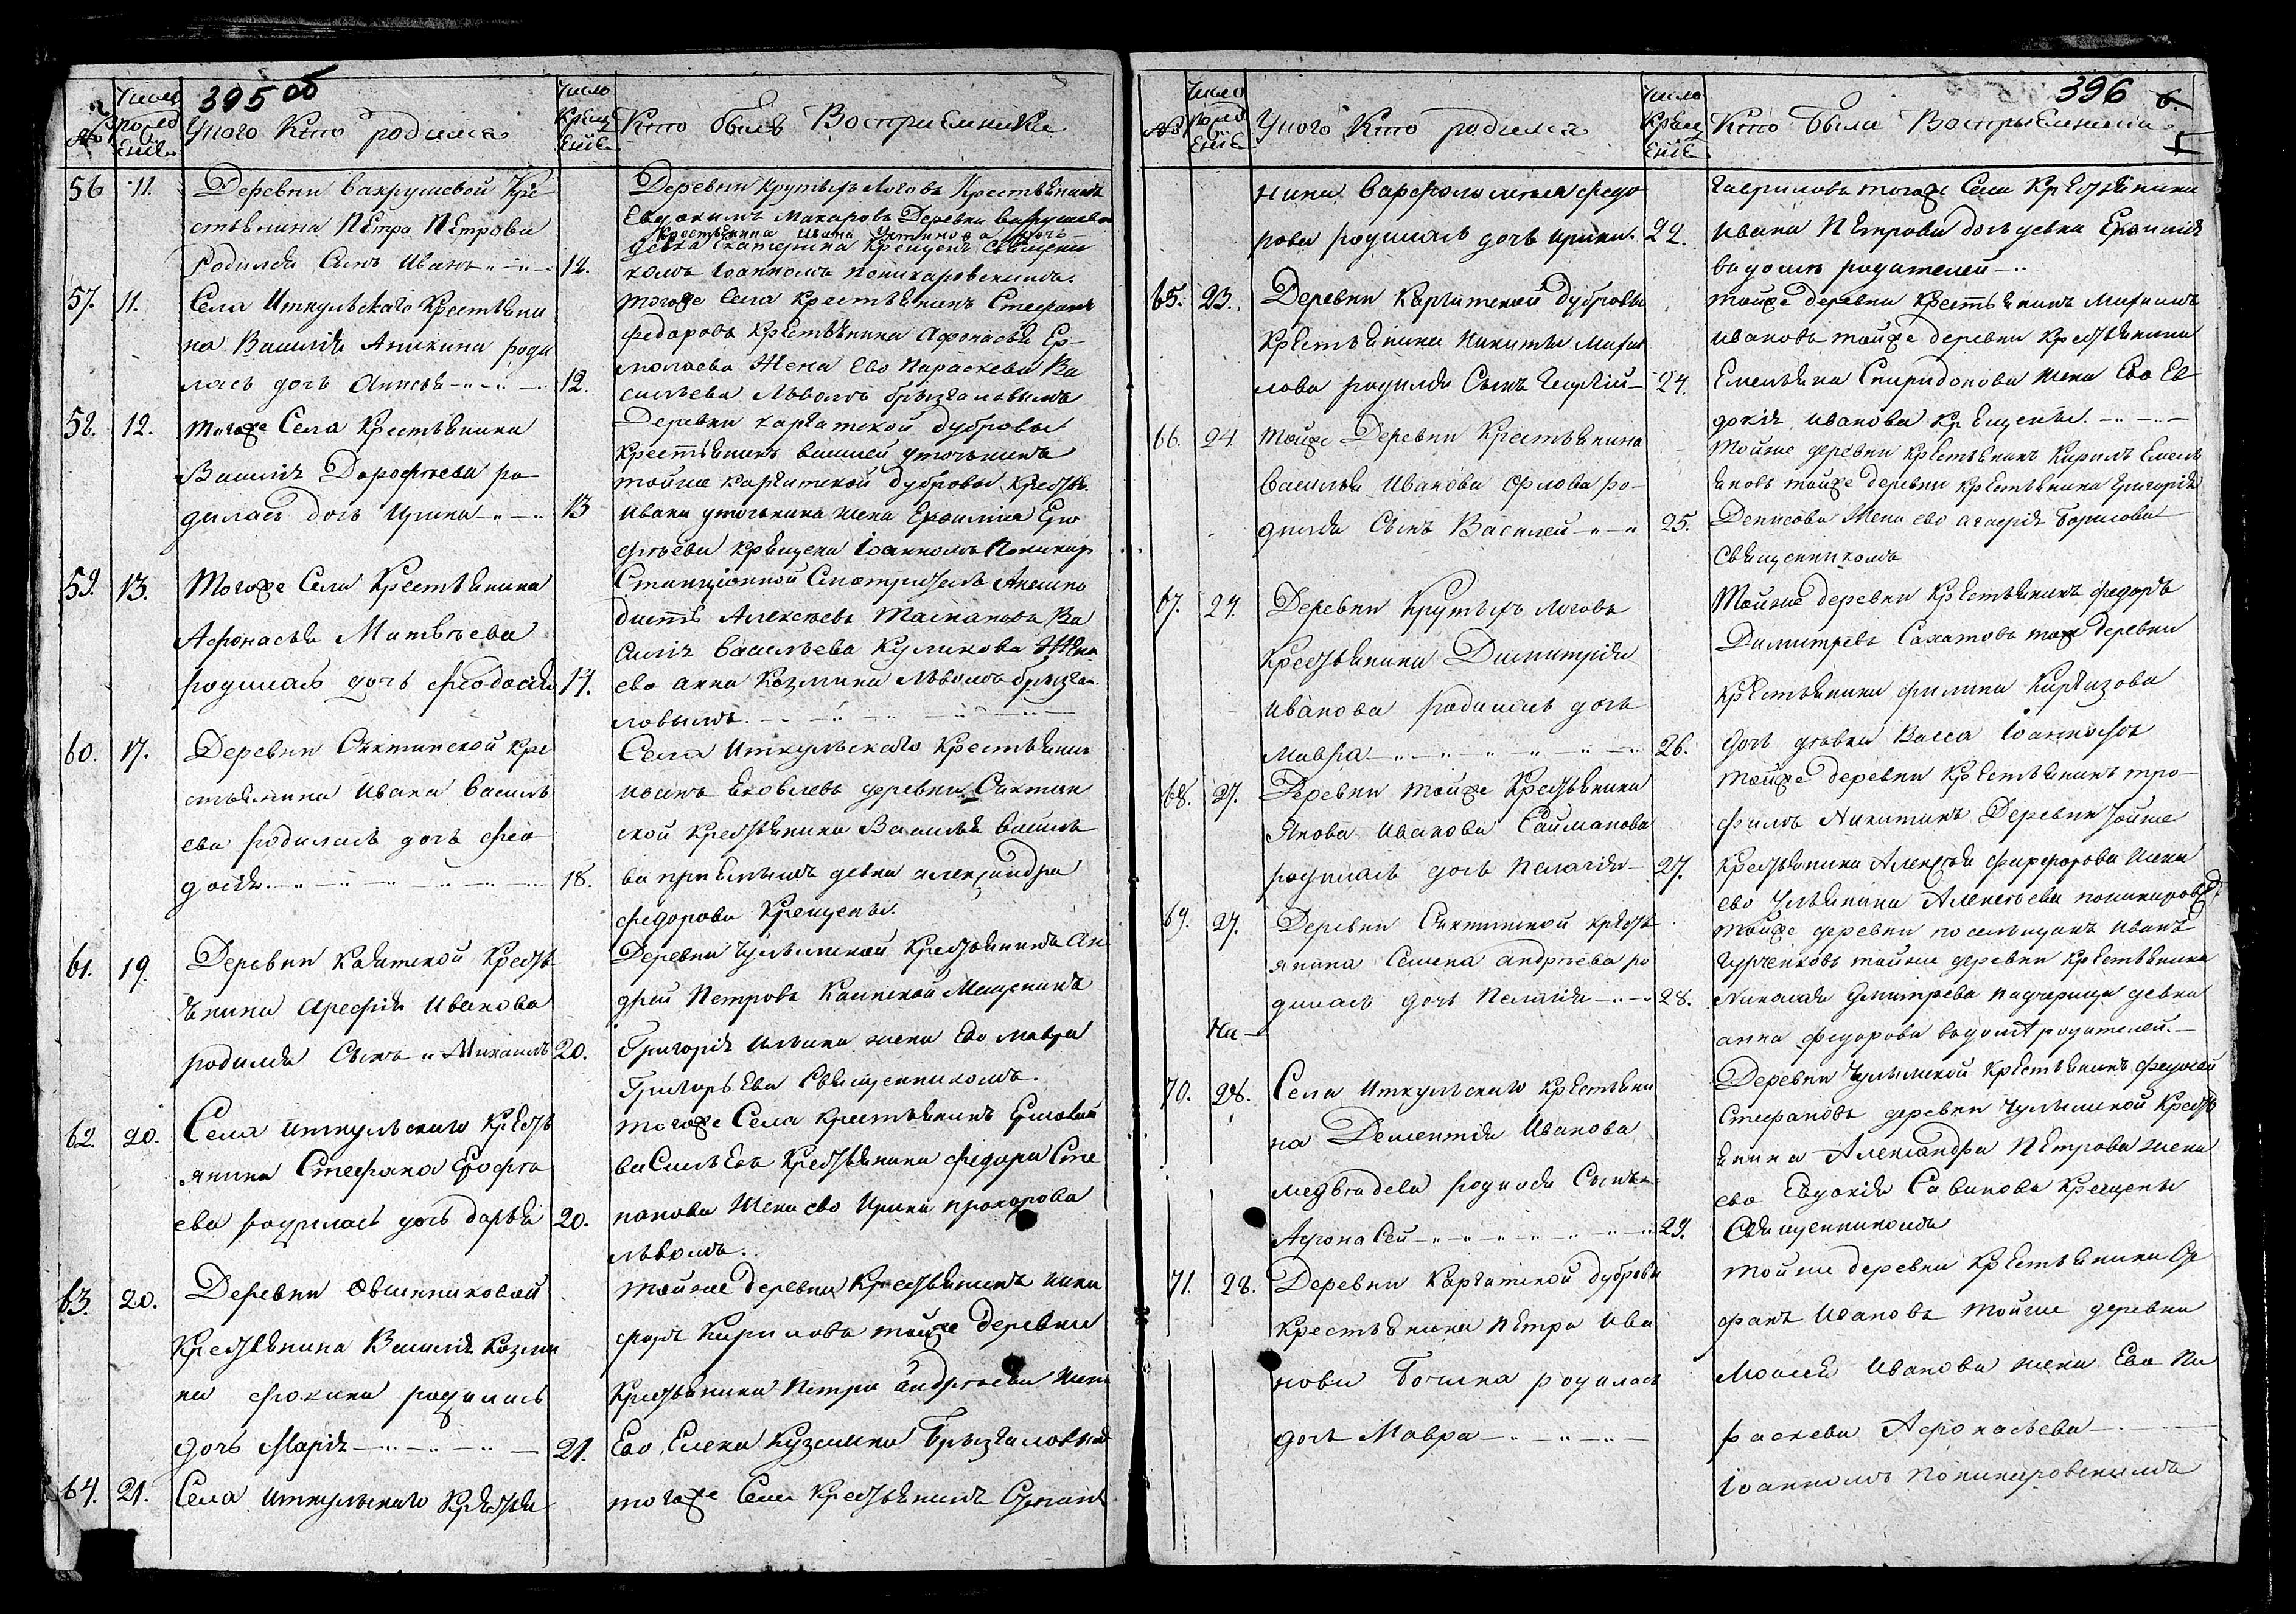 395 об
№
Число рождения
У кого Кто родился
Число Крещения
Кто былъ Восприемники
56 11. Деревни Вахрушевой Кре-
стьянина Петра Петрова
родился Сынъ Иванъ 12.
Деревни Крутыхъ Логовъ Крестьянинъ
Евдокимъ Макаровъ Деревни Вахрушевой
Крестьянина Ивана дочь
девка Екатерина Крещенъ Священи
комъ Иоанномъ Поникаровскимъ.
57. 11. Села Иткульскаго Крестьяни
на Василія Аникина роди
лась дочь Анисья 12.
тогоже Села Крестьянинъ Стефанъ
Федоровъ Крестьянина Афонасья Ер-
молаева Жена Ево Параскева Ва
сильева Львомъ Брызгаловымъ
58. 12. тогоже Села Крестьянина
Василія Дорофеева ро-
дилась дочь Ирина 13
Деревни Каргатской Дубровы
Крестьянинъ
тойже Каргатской дубровы Кресть.
Ивана жена
крещена Іоанномъ Поникар
59. 13. Тогоже Села Крестьянина
Афонасья Матвѣева
родилась дочь Феодосія 14.
Станціонной Смотритель
Алексѣевъ Ва
силія Васильева Куликова Жена
ево Анна Козмина Львомъ Брызга
ловымъ.
60. 17. Деревни Сектинской Кре
стьянина Ивана Василь
ева родилась дочь Фео
досія. 18.
Села Иткульскаго Крестьянинъ
Яковлевъ деревни Сектин
ской Крестьянина Василья Василь
ва девка Александра
Федорова Крещены.
61. 19. Деревни Крестья
янина Арефія Иванова
родился Сынъ Михаилъ 20.
Деревни Чулымской Крестьянинъ Ан
дрей Петровъ Каинской Мещенинъ
Григорія Ильина жена Ево Мавра
Григорьева Священникомъ.
62. 20. Села Иткульскаго Кресть
янина Стефана Ерофѣ
ева родилась дочь Дарья 20.
тогоже Села Крестьянинъ
Васильевъ Крестьянина Федора Сте
панова Жена ево Ирина Прохорова
Львомъ.
63. 20. Деревни Овчинниковой
Крестьянина Василія Козми
на Фокина родилась
дочь Марія 21.
тойже деревни Крестьянинъ Ники
форъ Кириловъ тойже Деревни
Крестьянина Петра Андрѣева жена
Ево Елена Кузмина Брызгаловымъ
64. 21. Села Иткульскаго Крестья
тогоже Села Крестьянинъ
396
№
Число рождения
У кого Кто родился
Число Крещения
Кто были Восприемники
нина Варфоломея Федо
рова родилась дочь Ирина. 22.
Гавриловъ тогоже Села Крестьянина
Ивана Петрова дочь девка
вдомѣ родителей
65. 23. Деревни Каргатской Дубровы
Крестьянина Никиты Михаи
лова родился Сынъ Георгій 24.
тойже деревни Крестьянинъ
Ивановъ тойже деревни Крестьянина
Емельяна Спиридонова жена Ево Ев
докія Иванова Крещены.
66. 24. тойже Деревни Крестьянина
Василья Иванова Орлова ро-
дился Сынъ Василей 25.
тойже деревни Крестьянинъ Кирилъ Емель
яновъ тойже деревни Крестьянина Григорія
Денисова Жена ево Агафія Борисова
Священникомъ
67. 24. Деревни Крутыхъ Логовъ
Крестьянина Димитрія
Иванова родилась дочь
Мавра 26.
Тойже деревни Крестьянинъ Федоръ
Димитревъ тоже деревни
Крестьянина Филипа Киргизова
дочь девка Васса Іоанномъ
68. 27. Деревни тойже Крестьянина
Якова Иванова Сайманова
родилась дочь Пелагія 27.
тойже деревни Крестьянинъ Тро-
фимъ Никитинъ Деревни тойже
Крестьянина Алексѣя жена
ево Ульянина Алексѣева Поникаров
69. 27. Деревни Сектинской Кресть
янина Семена Андрѣева ро
дилась дочь Пелагія 28.
тойже деревни поселыцикъ Иванъ
тойже деревни Крестьянина
Николая Дмитрева падчерица девка
Анна Федорова вдомѣ родителей.
На
70. 28. Села Иткульскаго Крестьяни
на Дементія Иванова
Медвѣдева родился Сынъ
Афонасей 29.
Деревни Чулымской Крестьянинъ
Стефановъ деревни Чулымской Кресть
янина Александра Петрова жена
ево Евдокія Савинова Крещены
Священникомъ
71. 28. Деревни Каргатской дубровы
Крестьянина Петра Ива
нова родилась
дочь Мавра
тойже деревни Крестьянина
Ивановъ тойже деревни
Моисея Иванова жена Ево Па
раскева Афонасьева
Іоанномъ Поникаровскимъ